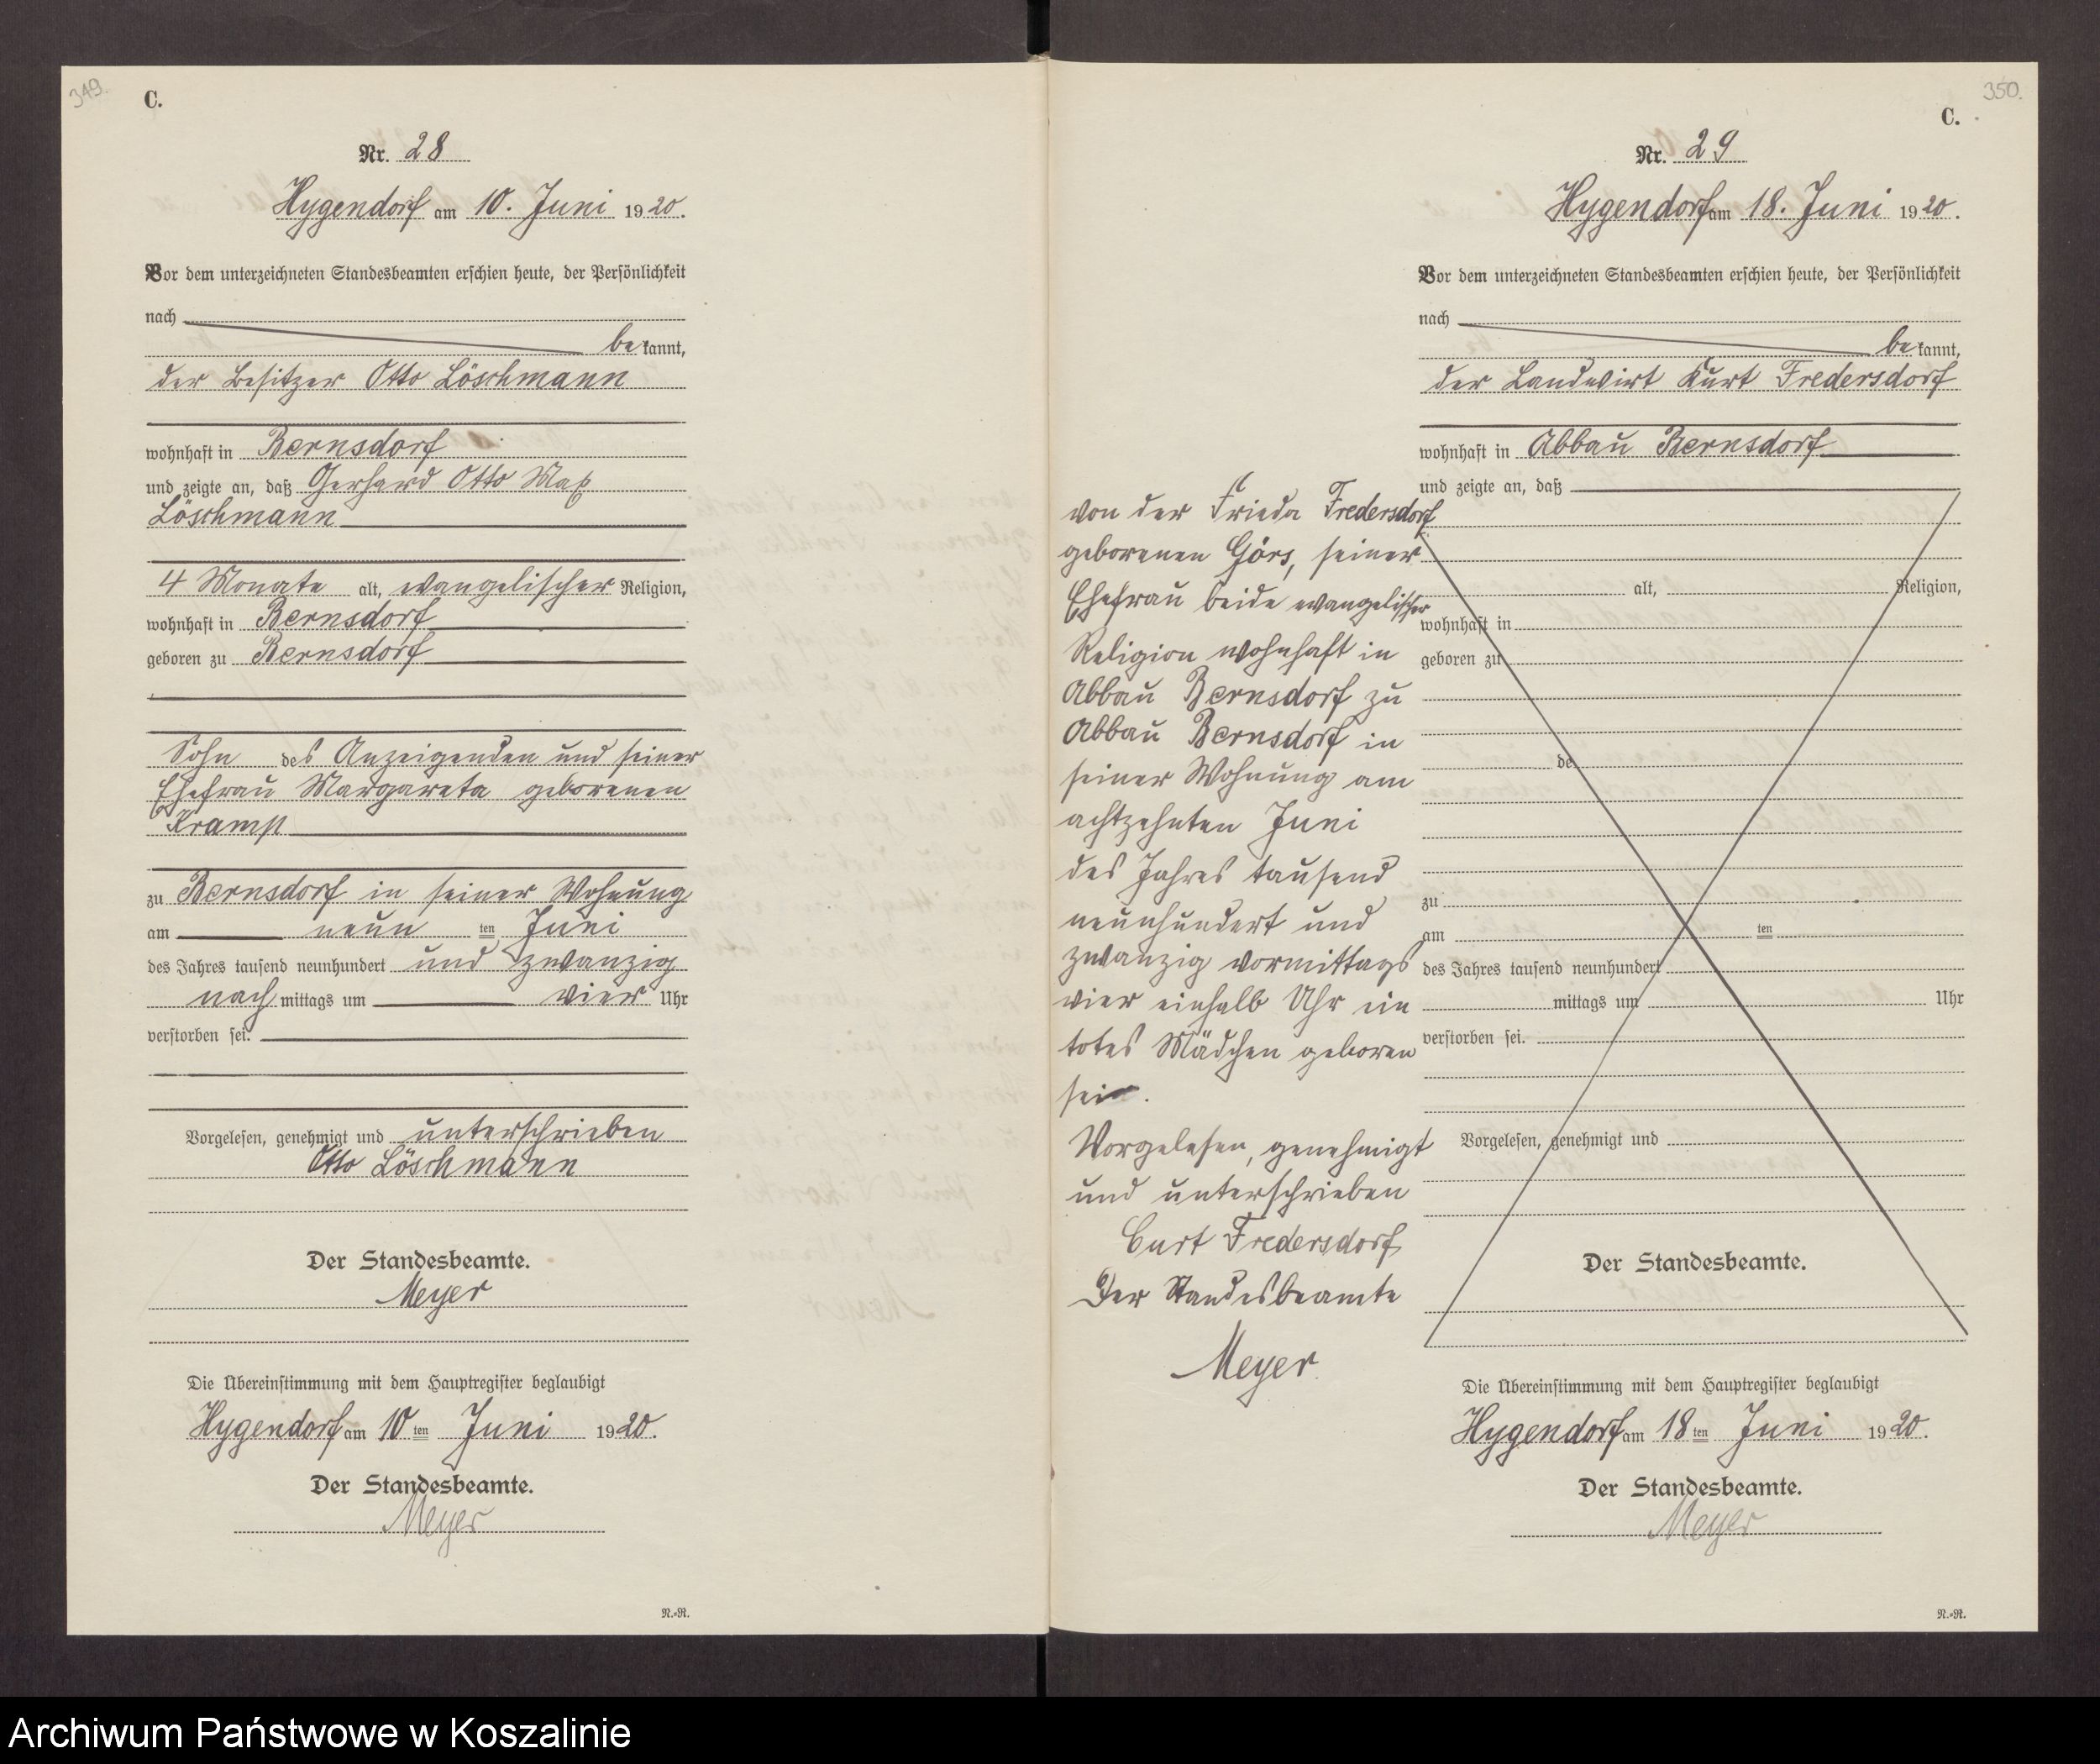 349.
C.
Nr. 28
Hygendorf am 10. Juni 1920.
Vor dem unterzeichneten Standesbeamten erschien heute, der Persönlichkeit
nach
bekannt,
der Besitzer Otto Löschmann
wohnhaft in Bernsdorf
und zeigte an, daß Gerhard Otto Max
Löschmann
4 Monate alt, evangelischer Religion,
wohnhaft in Bernsdorf
geboren zu Bernsdorf
Sohn des Anzeigenden und seiner
Ehefrau Margareta geborenen
Kramp
zu Bernsdorf in seiner Wohnung
am neun ten Juni
des Jahres tausend neunhundert und zwanzig
nach mittags um vier Uhr
verstorben sei.
Vorgelesen, genehmigt und unterschrieben
Otto Löschmann
Der Standesbeamte.
Meyer
Die Übereinstimmung mit dem Hauptregister beglaubigt
Hygendorf am 10ten Juni 1920.
Der Standesbeamte.
Meyer
N.=R.
350.
C.
Nr. 29
Hygendorf am 18. Juni 1920.
Vor dem unterzeichneten Standesbeamten erschien heute, der Persönlichkeit
nach
bekannt,
der Landwirt Kurt Fredersdorf
wohnhaft in Abbau Bernsdorf
und zeigte an, daß
von der Frieda Fredersdorf
geborenen Görs, seiner
Ehefrau beide evangelischer
Religion wohnhaft in
Abbau Bernsdorf zu
Abbau Bernsdorf in
seiner Wohnung am
achtzehnten Juni
des Jahres tausend
neunhundert und
zwanzig vormittags
vier einhalb Uhr ein
totes Mädchen geboren
sei.
Vorgelesen, genehmigt
und unterschrieben
Curt Fredersdorf
Der Standesbeamte
Meyer
alt, Religion,
wohnhaft in
geboren zu
de
zu
am ten
des Jahres tausend neunhundert
mittags um Uhr
verstorben sei.
Vorgelesen, genehmigt und
Der Standesbeamte.
Die Übereinstimmung mit dem Hauptregister beglaubigt
Hygendorf am 18ten Juni 1920.
Der Standesbeamte.
Meyer
N.=R.
Archiwum Państwowe w Koszalinie